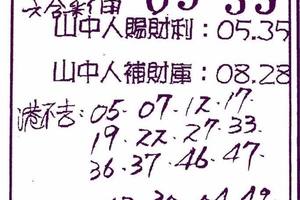 山中人賜財利：05.35
山中人補財庫：08.28
港不吉：05.07.12.17.
19.22.27.33.
36.37.46.47.